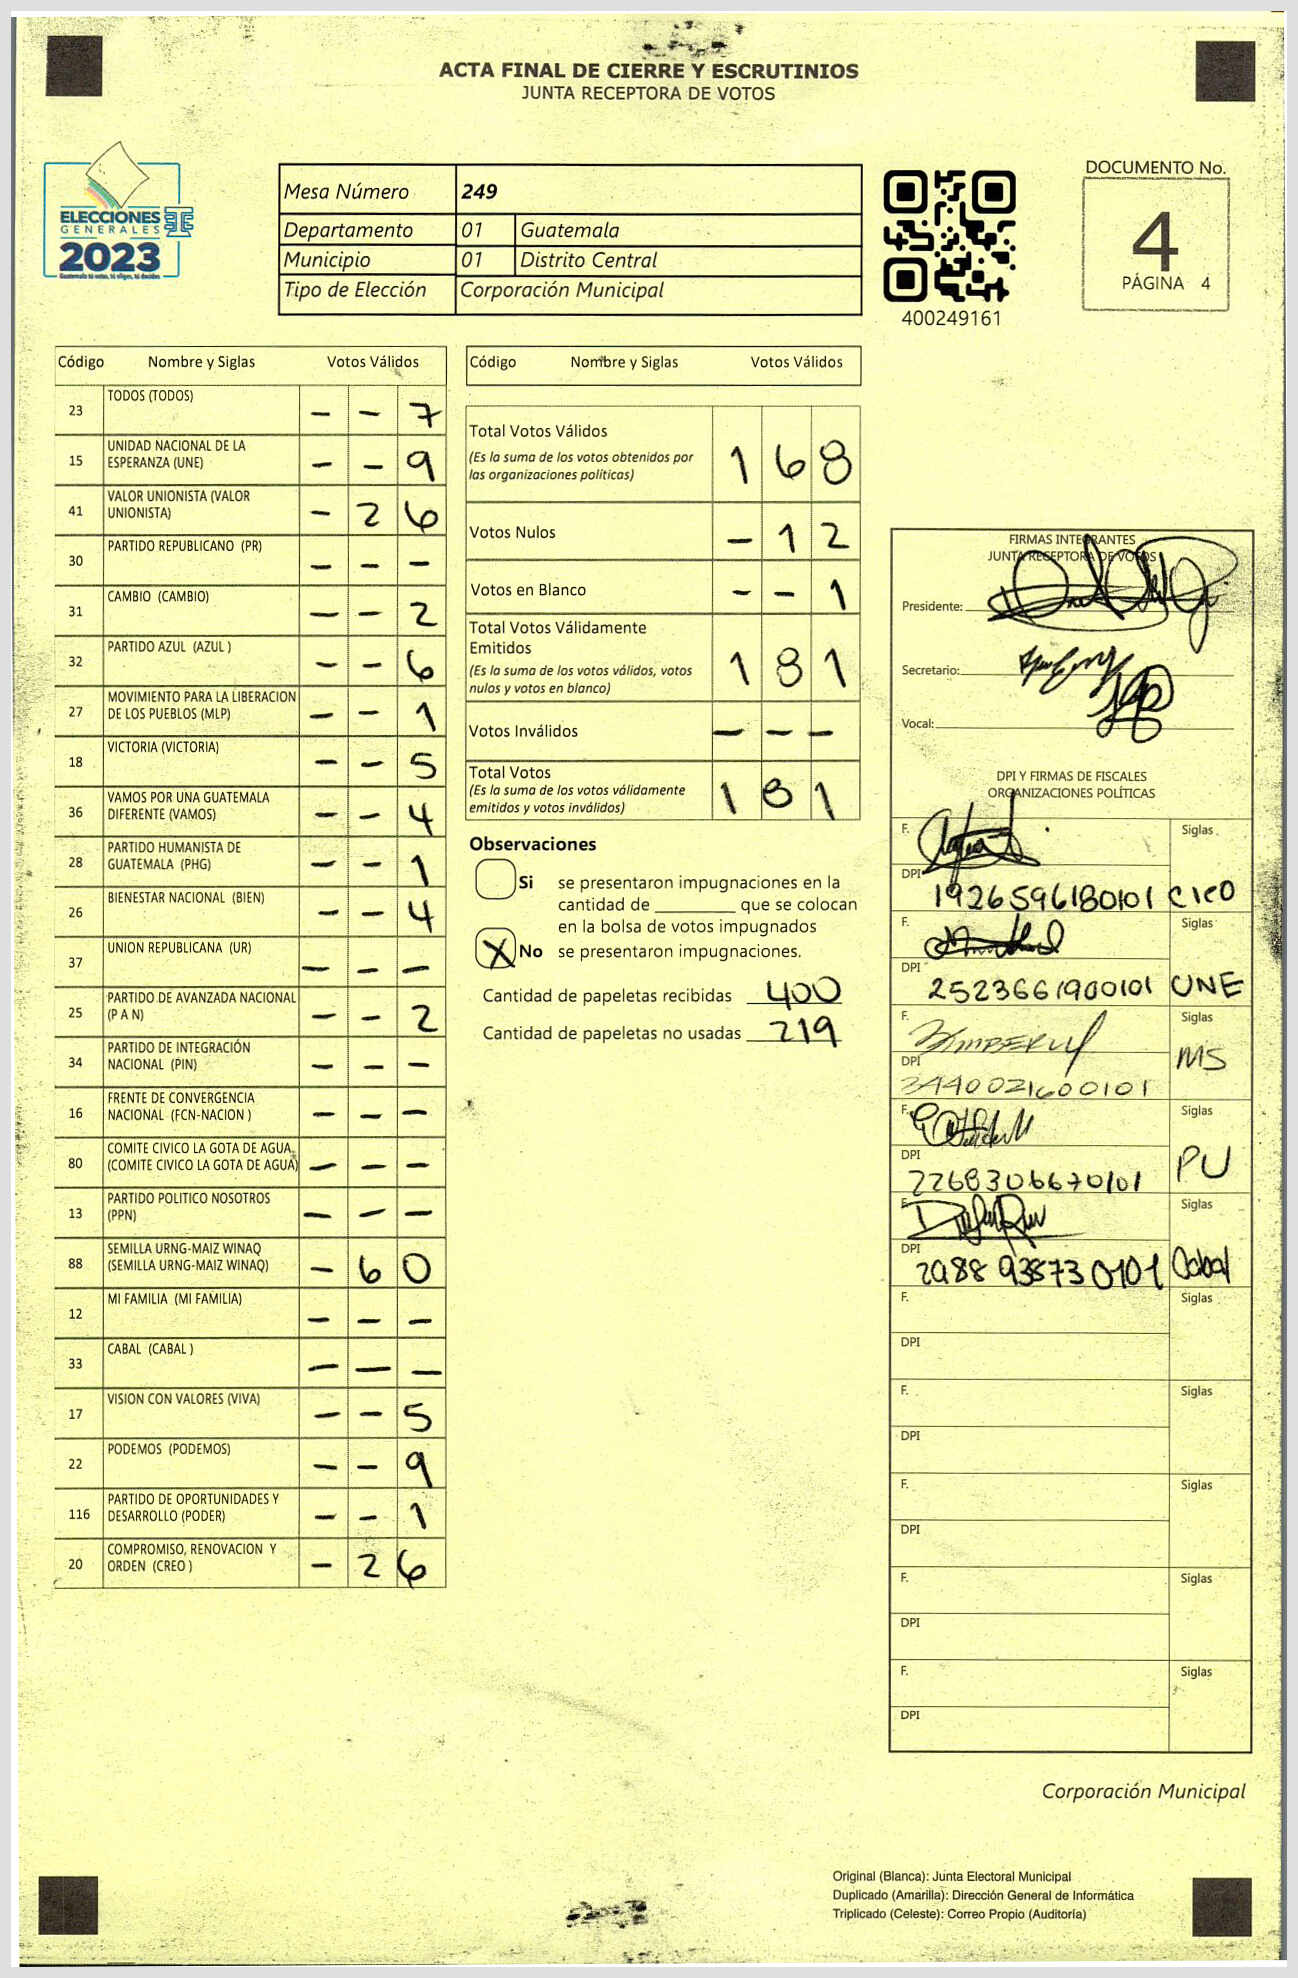 ACTA FINAL DE CIERRE Y ESCRUTINIOS
JUNTA RECEPTORA DE VOTOS
ELECCIONES
GENERALES
2023
Mesa Número 249
Departamento 01 Guatemala
Municipio 01 Distrito Central
Tipo de Elección Corporación Municipal
400249161
DOCUMENTO No.
4
PÁGINA 4
Código Nombre y Siglas Votos Válidos
23 TODOS (TODOS) - - 7
15 UNIDAD NACIONAL DE LA ESPERANZA (UNE) - - 9
41 VALOR UNIONISTA (VALOR UNIONISTA) - 2 6
30 PARTIDO REPUBLICANO (PR) - - -
31 CAMBIO (CAMBIO) - - 2
32 PARTIDO AZUL (AZUL ) - - 6
27 MOVIMIENTO PARA LA LIBERACION DE LOS PUEBLOS (MLP) - - 1
18 VICTORIA (VICTORIA) - - 5
36 VAMOS POR UNA GUATEMALA DIFERENTE (VAMOS) - - 4
28 PARTIDO HUMANISTA DE GUATEMALA (PHG) - - 1
26 BIENESTAR NACIONAL (BIEN) - - 4
37 UNION REPUBLICANA (UR) - - -
25 PARTIDO DE AVANZADA NACIONAL (P A N) - - 2
34 PARTIDO DE INTEGRACIÓN NACIONAL (PIN) - - -
16 FRENTE DE CONVERGENCIA NACIONAL (FCN-NACION ) - - -
80 COMITE CIVICO LA GOTA DE AGUA (COMITE CIVICO LA GOTA DE AGUA) - - -
13 PARTIDO POLITICO NOSOTROS (PPN) - - -
88 SEMILLA URNG-MAIZ WINAQ (SEMILLA URNG-MAIZ WINAQ) - 6 0
12 MI FAMILIA (MI FAMILIA) - - -
33 CABAL (CABAL ) - - -
17 VISION CON VALORES (VIVA) - - 5
22 PODEMOS (PODEMOS) - - 9
116 PARTIDO DE OPORTUNIDADES Y DESARROLLO (PODER) - - 1
20 COMPROMISO, RENOVACION Y ORDEN (CREO ) - 2 6
Código Nombre y Siglas Votos Válidos
Total Votos Válidos 1 6 8
(Es la suma de los votos obtenidos por
las organizaciones políticas)
Votos Nulos - 1 2
Votos en Blanco - - 1
Total Votos Válidamente
Emitidos 1 8 1
(Es la suma de los votos válidos, votos
nulos y votos en blanco)
Votos Inválidos - - -
Total Votos 1 8 1
(Es la suma de los votos válidamente
emitidos y votos inválidos)
Observaciones
Si se presentaron impugnaciones en la
cantidad de ________ que se colocan
en la bolsa de votos impugnados
X No se presentaron impugnaciones.
Cantidad de papeletas recibidas 400
Cantidad de papeletas no usadas 219
FIRMAS INTEGRANTES
JUNTA RECEPTORA DE VOTOS
Presidente:
Secretario:
Vocal:
DPI Y FIRMAS DE FISCALES
ORGANIZACIONES POLÍTICAS
F. Siglas
DPI 1926596180101
F. Siglas
DPI 2523661900101 UNE
F. KIMBERLY Siglas
DPI 3440021600101 MS
F. Siglas
DPI 2268306670101 PU
F. Siglas
DPI 2988938730101 Cabal
F. Siglas
DPI
F. Siglas
DPI
F. Siglas
DPI
F. Siglas
DPI
F. Siglas
DPI
Corporación Municipal
Original (Blanca): Junta Electoral Municipal
Duplicado (Amarilla): Dirección General de Informática
Triplicado (Celeste): Correo Propio (Auditoría)